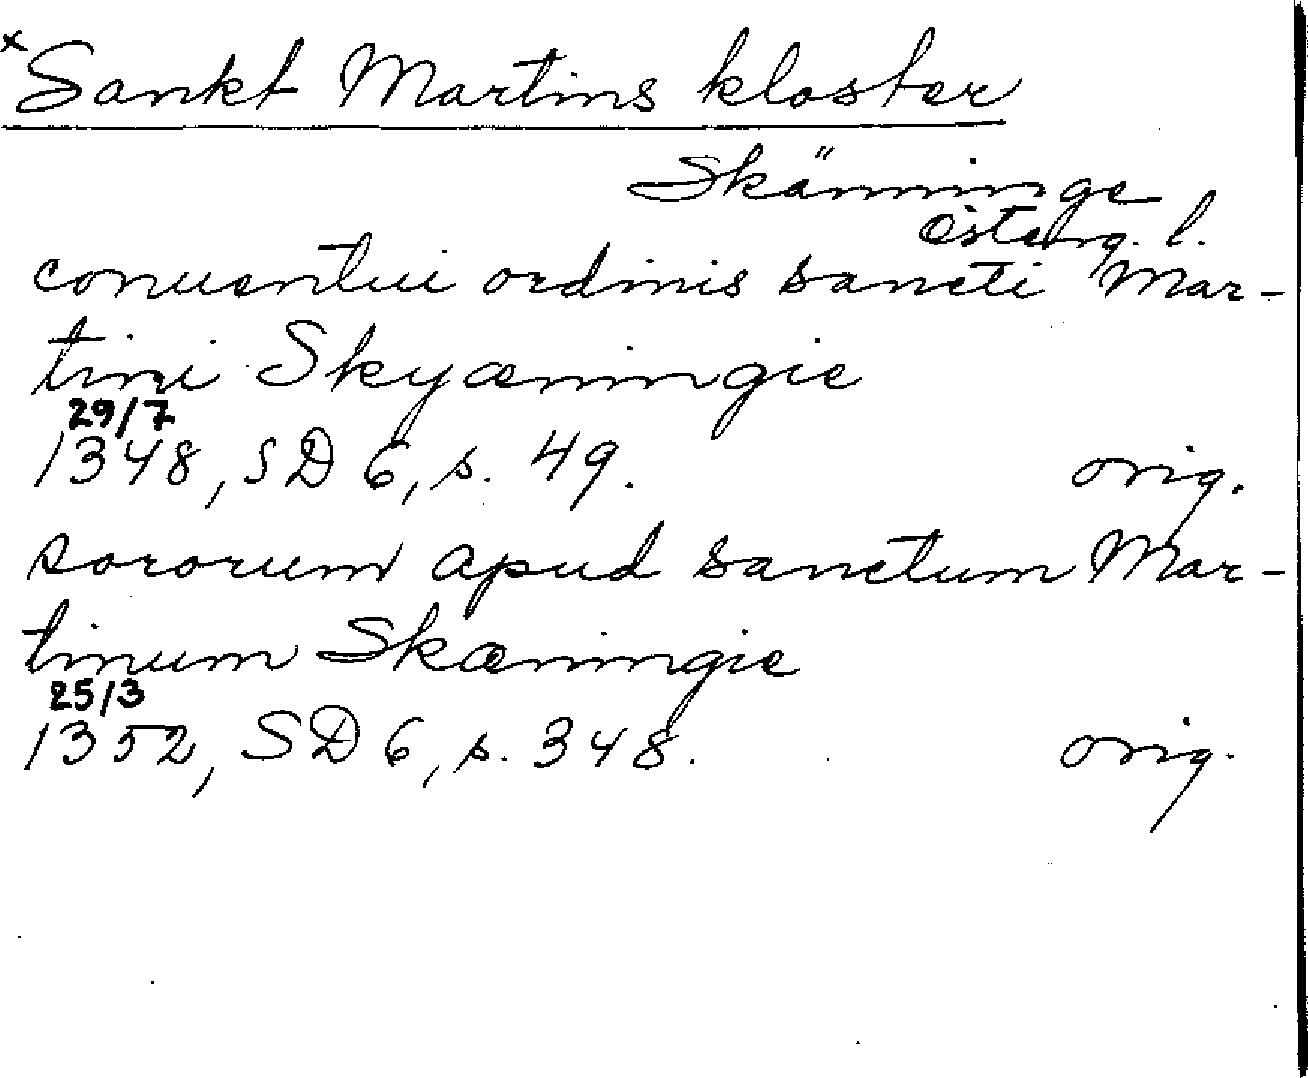 x Sankt Martins kloster
Skänninge
Österg. l.
conuentui ordinis sancti Mar-
tini Skyæningie
29/7
1348, SD 6, s. 49. orig.
sororum apud sanctum Mar-
tinum Skæningie
25/3
1352, SD 6, s. 348. orig.